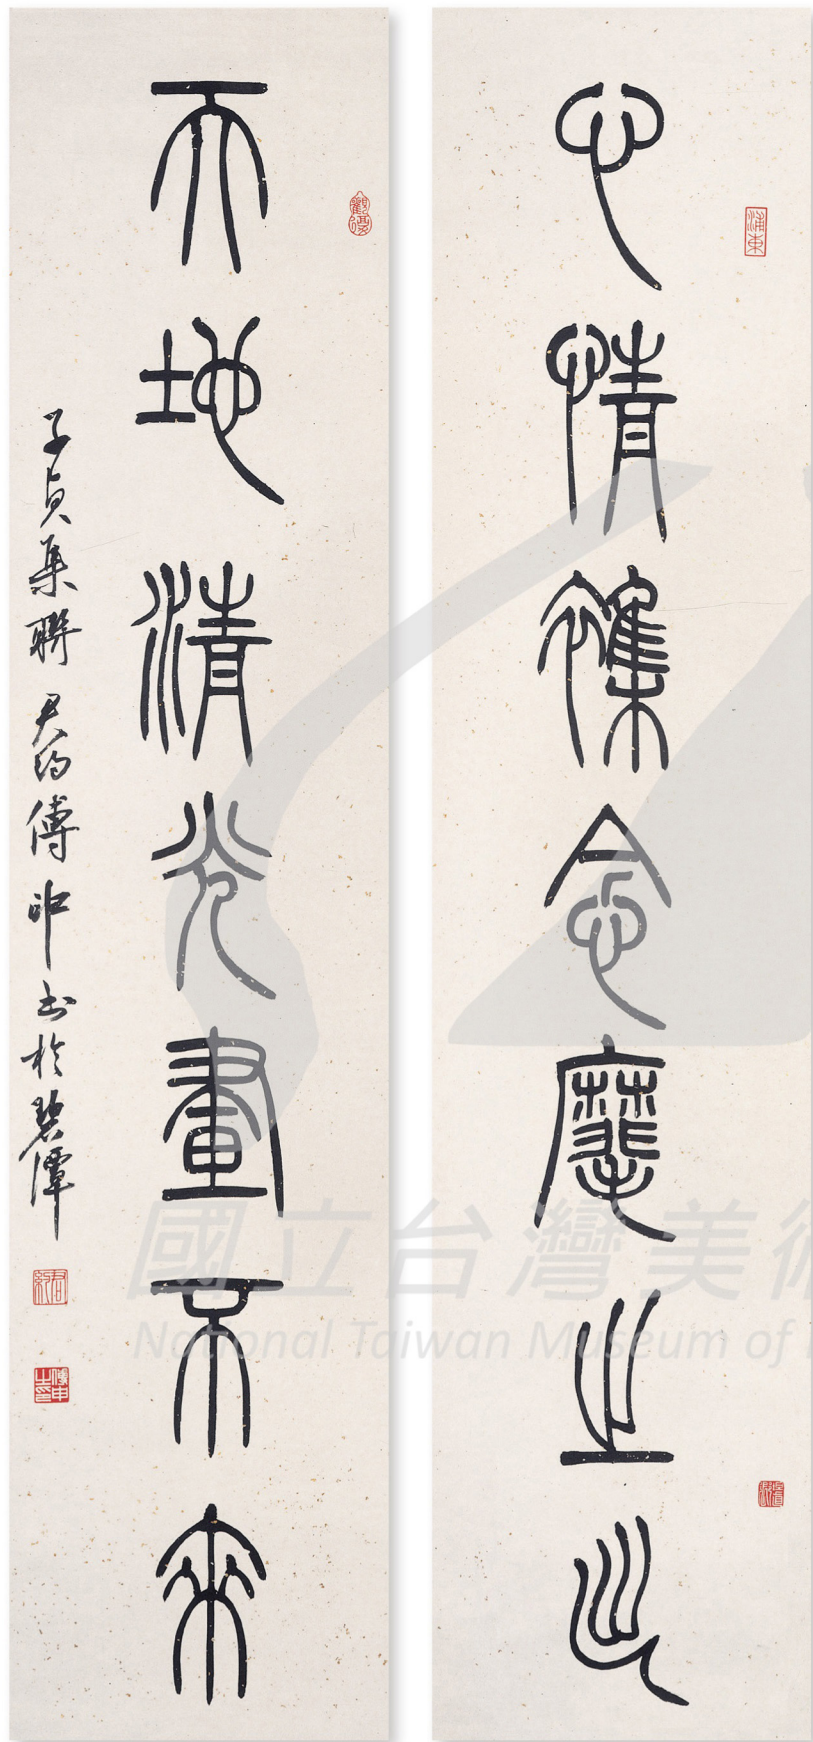 心情雜念麾之出
天地清光畫不來
子貞集聯 君約傅申書於碧潭
浦東
君約
國立台灣美術
National Taiwan Museum of